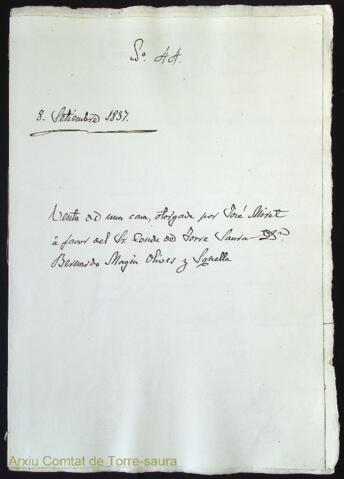 Sº. 44.
8. Setiembre 1837.
Venta de una casa, otorgada por José Miret
á favor del Sr. Conde de Torre Saura Dn.
Bernardo Magin Olives y Squella
Arxiu Comtat de Torre-saura